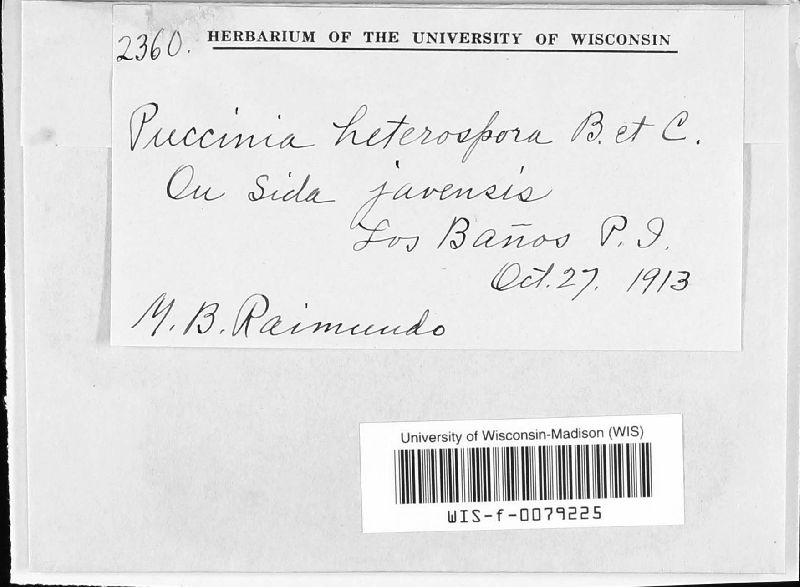 2360. HERBARIUM OF THE UNIVERSITY OF WISCONSIN
Puccinia heterospora B. et C.
On Sida javensis
Los Baños P. I.
Oct. 27. 1913
M. B. Raimundo
University of Wisconsin-Madison (WIS)
WIS-f-0079225